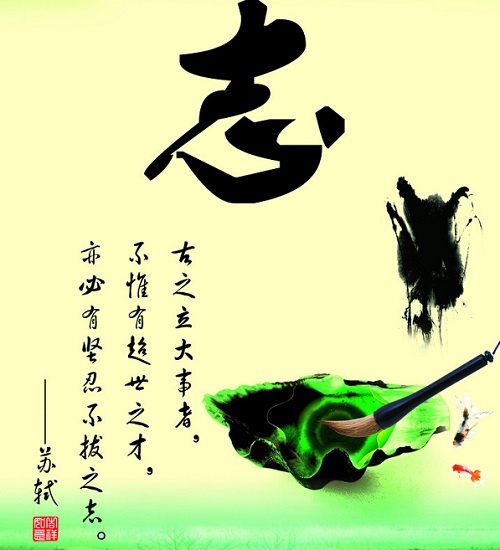 志
古之立大事者，
不惟有超世之才，
亦必有坚忍不拔之志。
——苏轼